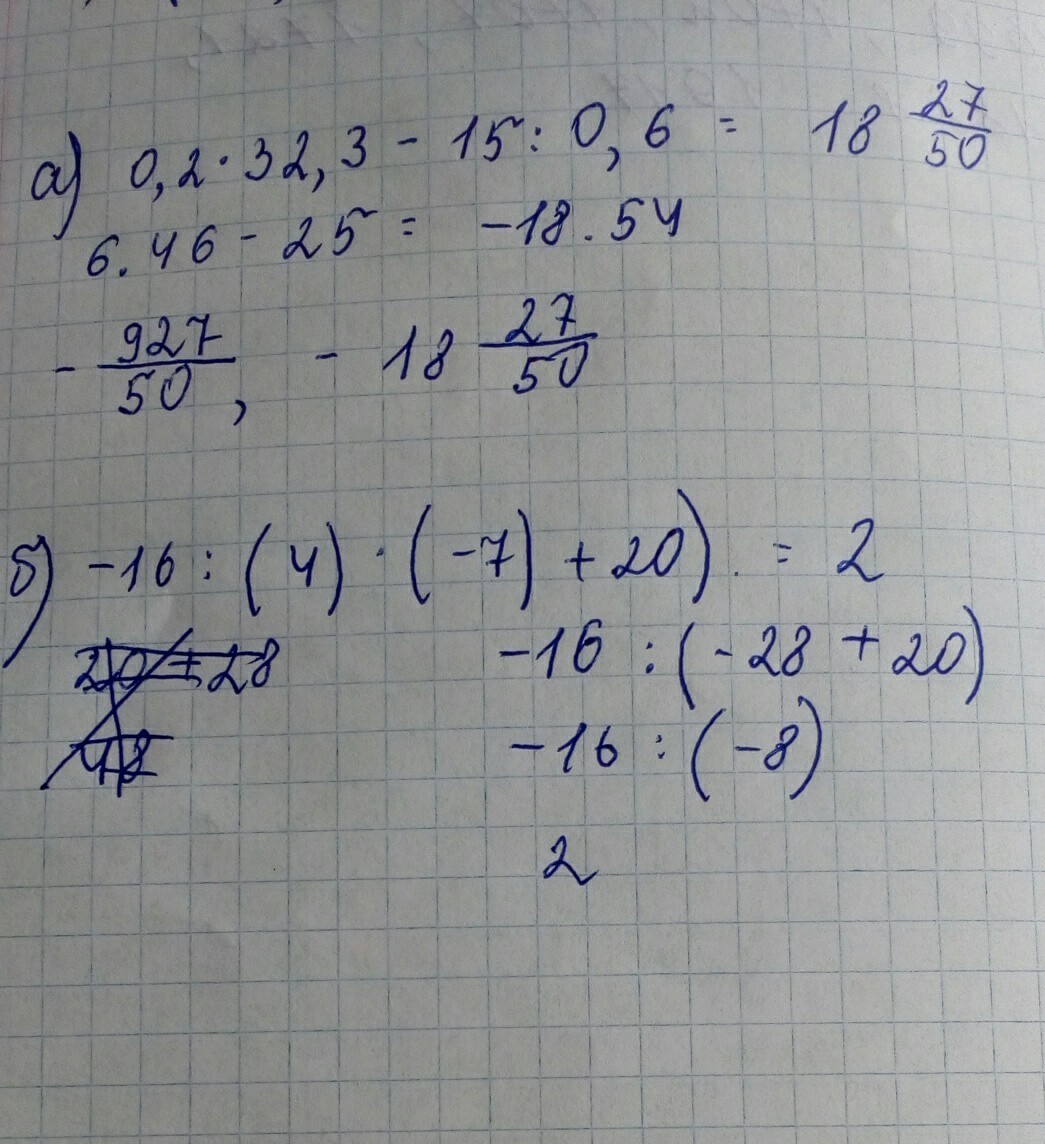 а) 0,2·32,3 - 15 : 0,6 = 18 27/50
6.46 - 25 = -18.54
- 927/50, - 18 27/50
б) -16 : (4) · (-7) + 20) . = 2
-16 : (-28 + 20)
-16 : (-8)
2